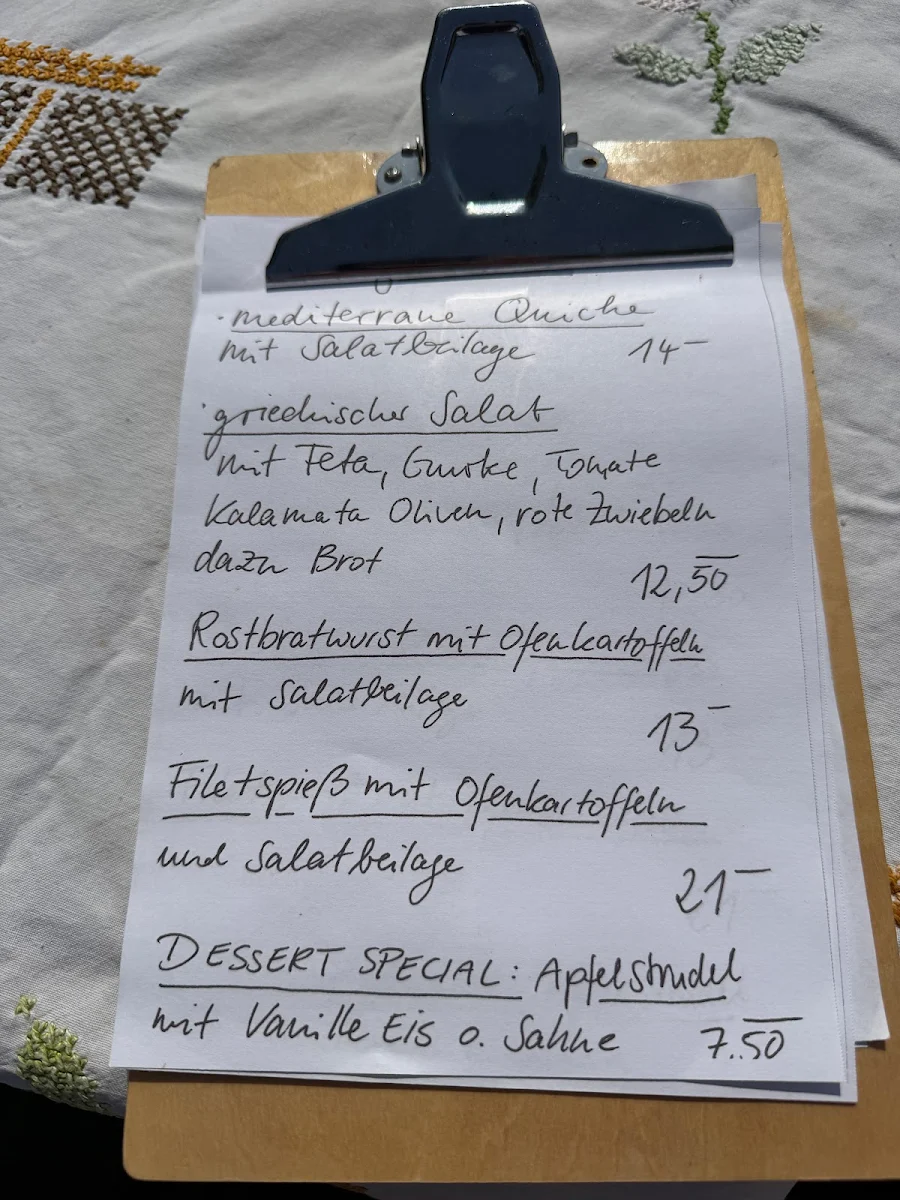 · mediterrane Quiche
mit Salatbeilage 14-
· griechischer Salat
mit Feta, Gurke, Tomate
Kalamata Oliven, rote Zwiebeln
dazu Brot
12,50
Rostbratwurst mit Ofenkartoffeln
mit Salatbeilage
13-
Filetspieß mit Ofenkartoffeln
und Salatbeilage
21-
DESSERT SPECIAL: Apfelstrudel
mit Vanille Eis o. Sahne 7.50